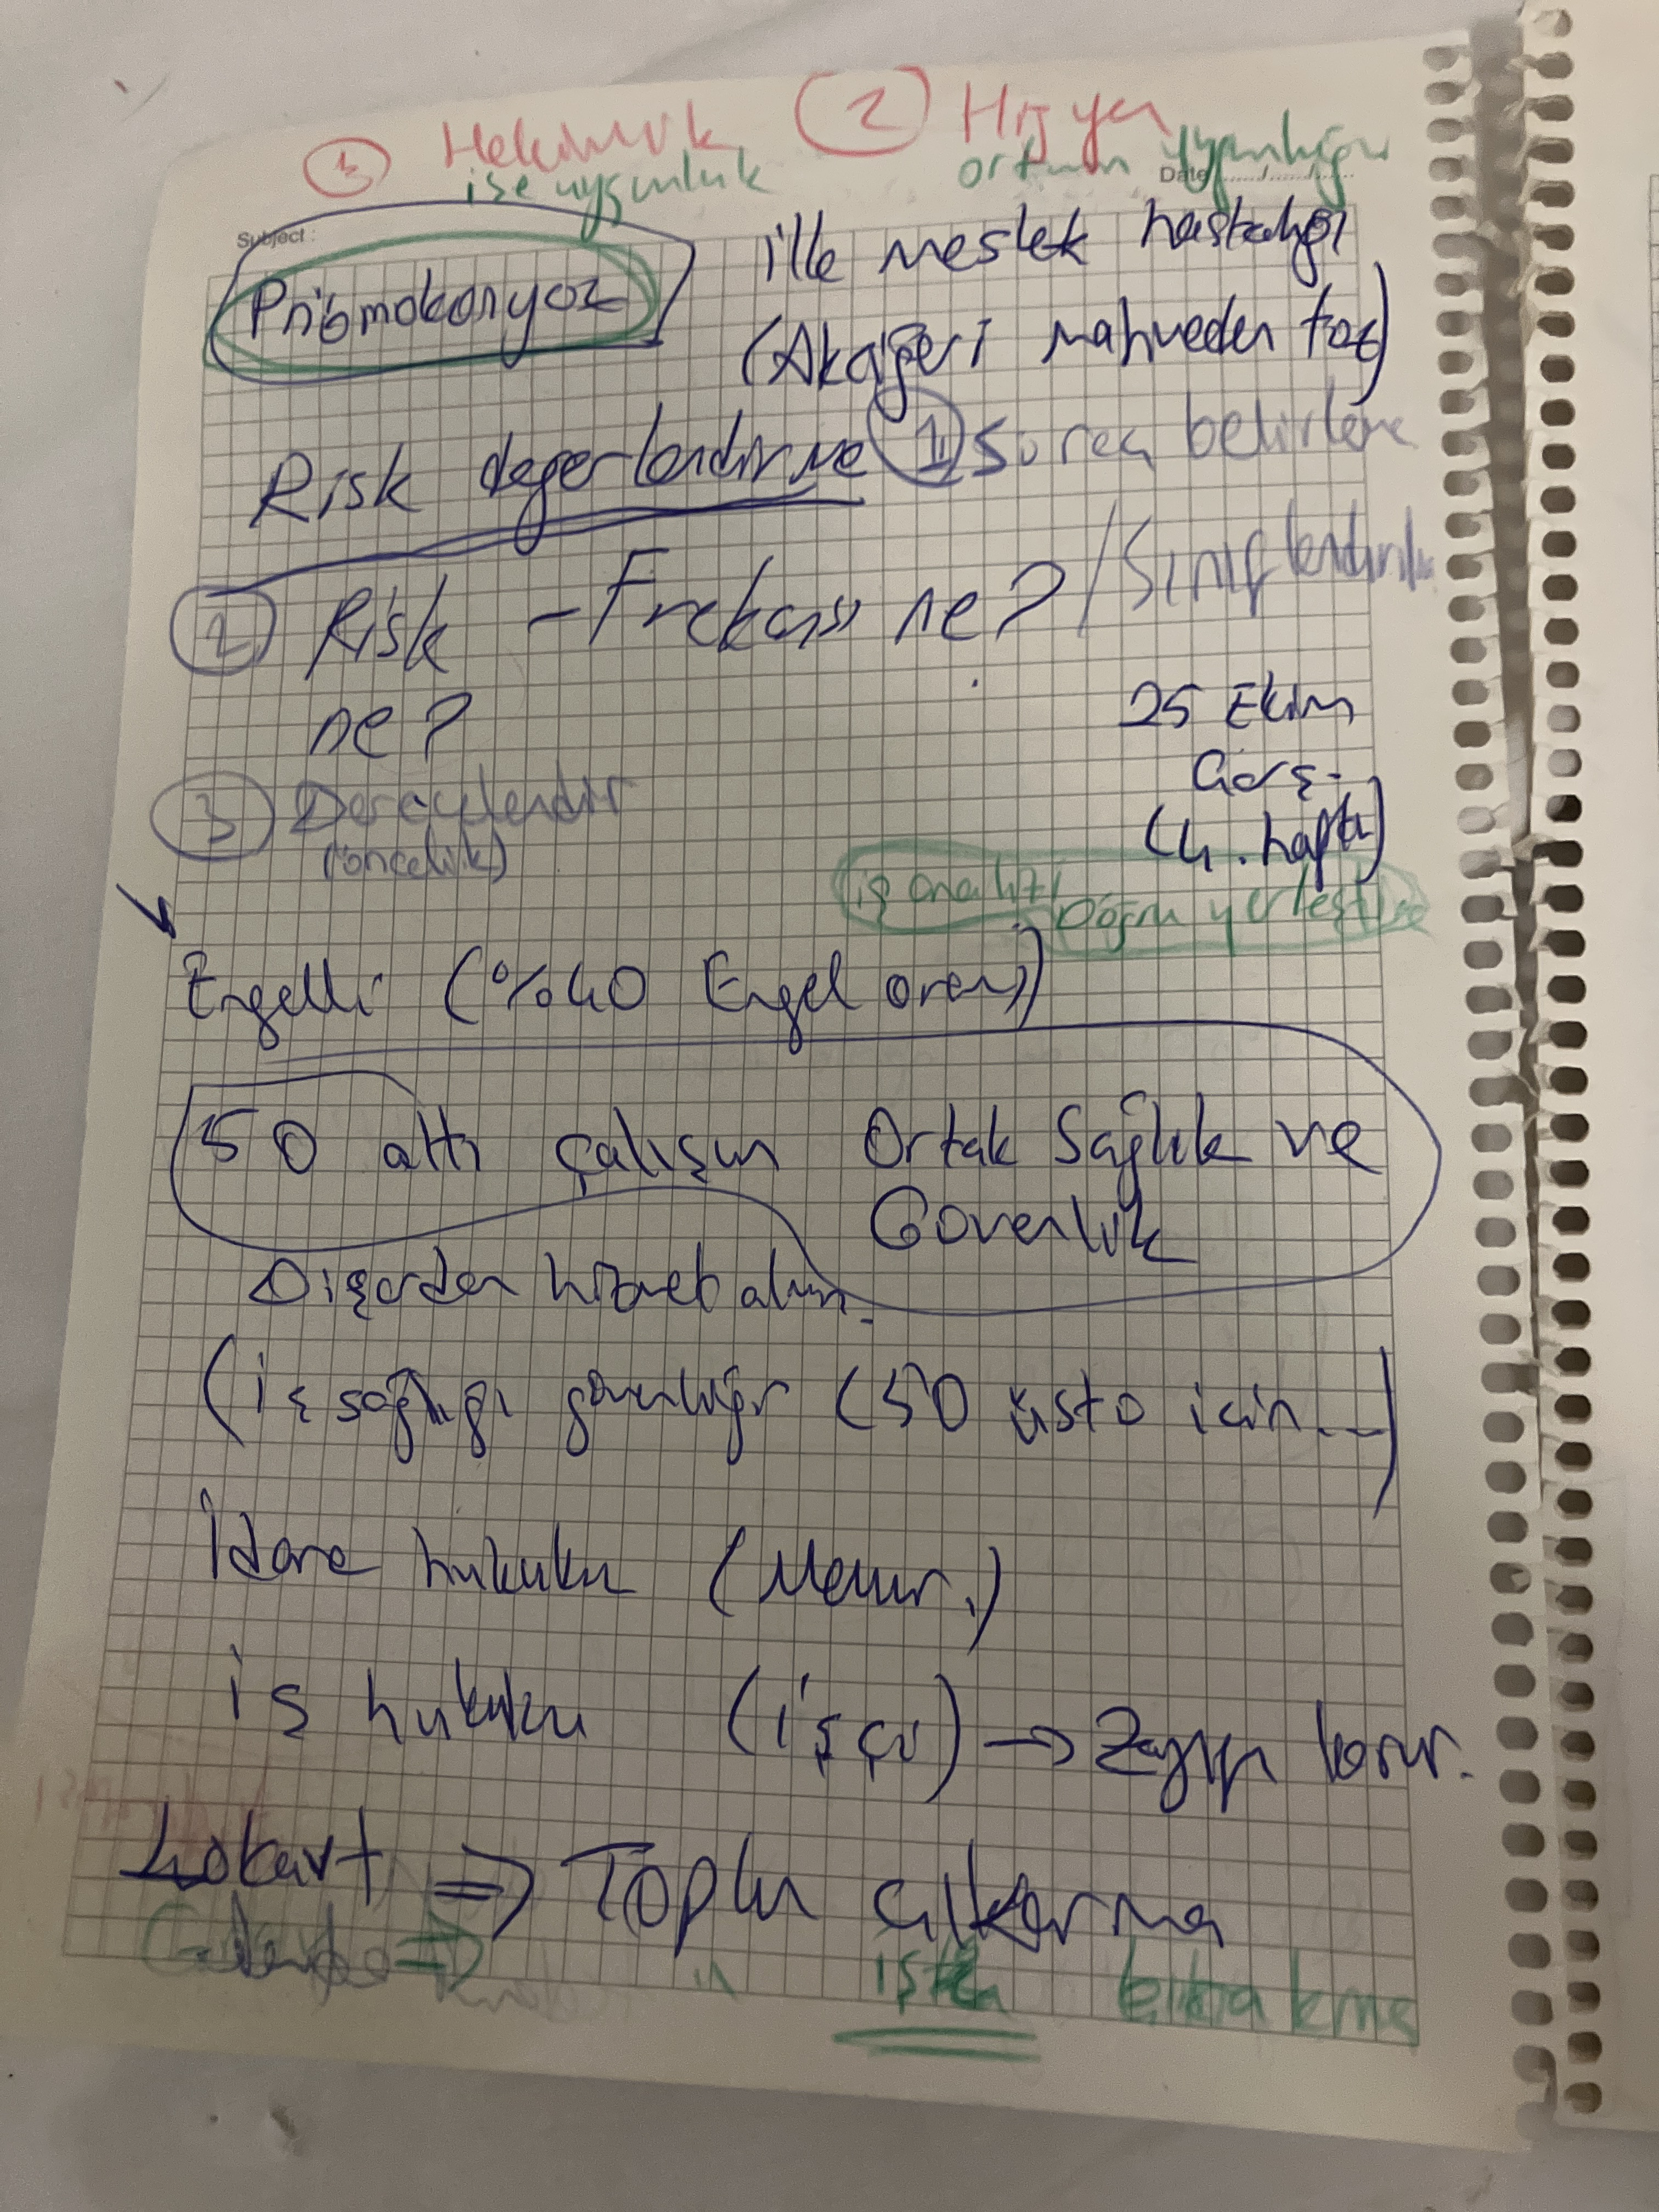 ① Hekimlik ② Hijyen
işe uygunluk ortam uygunluğu
Date ....../....../......
Subject :
Pnömokonyoz ille meslek hastalığı
(Akciğeri mahveden toz)
Risk değerlendirme ① Süreç belirleme
② Risk - Frekansı ne? / Sınıflandırılır
ne?
25 Ekim
Görş.
③ Derecelendir
(öncelik)
(4. hafta)
iş analizi Doğru yerleştirme
Engelli (%40 Engel oranı)
50 altı çalışan Ortak Sağlık ve
Güvenlik
Dışardan hizmet alımı.
(iş sağlığı güvenliği (50 üstü için...)
İdare hukuku (Memur.)
iş hukuku (işçi) → Zayıfı korur.
Lokavt ⇒ Toplu çıkarma
⇒ işten